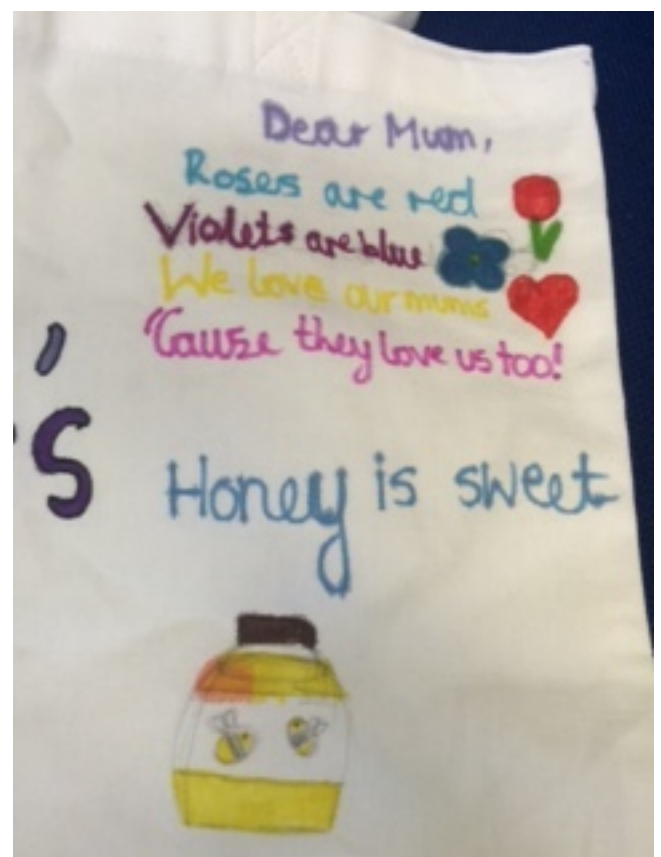 Dear Mum,
Roses are red
Violets are blue
We love our mums
'Cause they love us too!
's
Honey is sweet